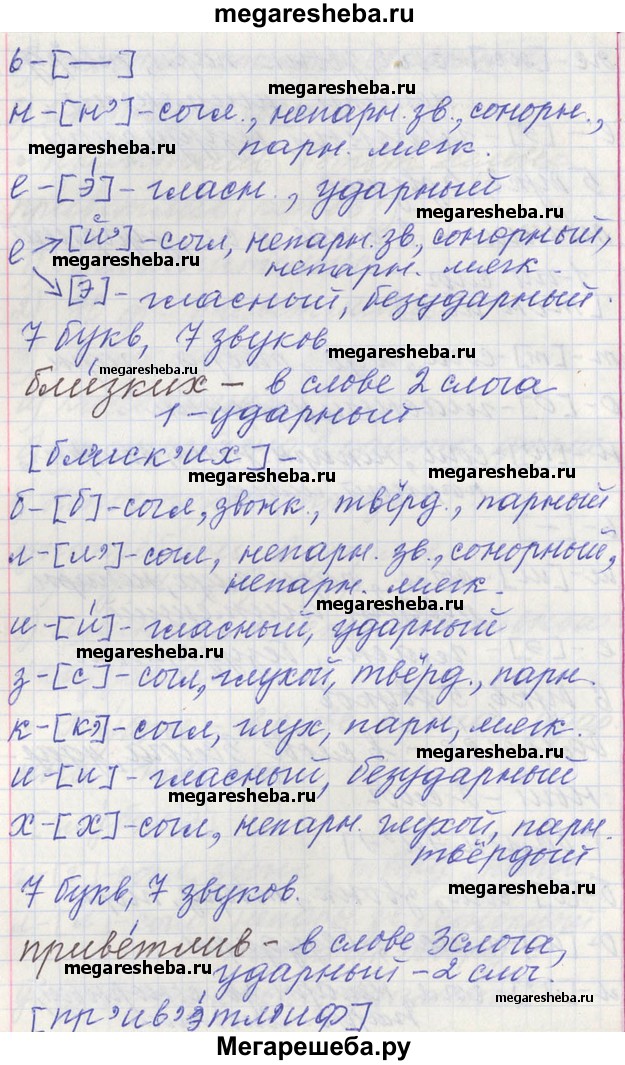 megaresheba.ru
ь-[—]
megaresheba.ru
н-[н’]-согл., непарн. зв., сонорн.,
megaresheba.ru парн. мягк.
е-[э́]-гласн., ударный
megaresheba.ru
е → [й’]-согл, непарн. зв., сонорный,
megaresheba.ru непарн. мягк.
[э]-гласный, безударный.
7 букв, 7 звуков
megaresheba.ru
бли́зких - в слове 2 слога
1-ударный
[бл’и́ск’их]-
megaresheba.ru megaresheba.ru
б-[б]-согл, звонк., твёрд., парный
л-[л’]-согл, непарн. зв., сонорный,
непарн. мягк.
megaresheba.ru
и-[и́]-гласный, ударный
megaresheba.ru
з-[с]-согл, глухой, твёрд., парн.
к-[к’]-согл, глух, парн, мягк.
megaresheba.ru
и-[и]-гласный, безударный
megaresheba.ru
х-[х]-согл, непарн. глухой, парн.
твёрдый
7 букв, 7 звуков.
megaresheba.ru
приве́тлив - в слове 3 слога,
megaresheba.ru ударный-2 слог.
megaresheba.ru
[пр’ив’э́тл’иф]
megaresheba.ru
Мегарешеба.ру